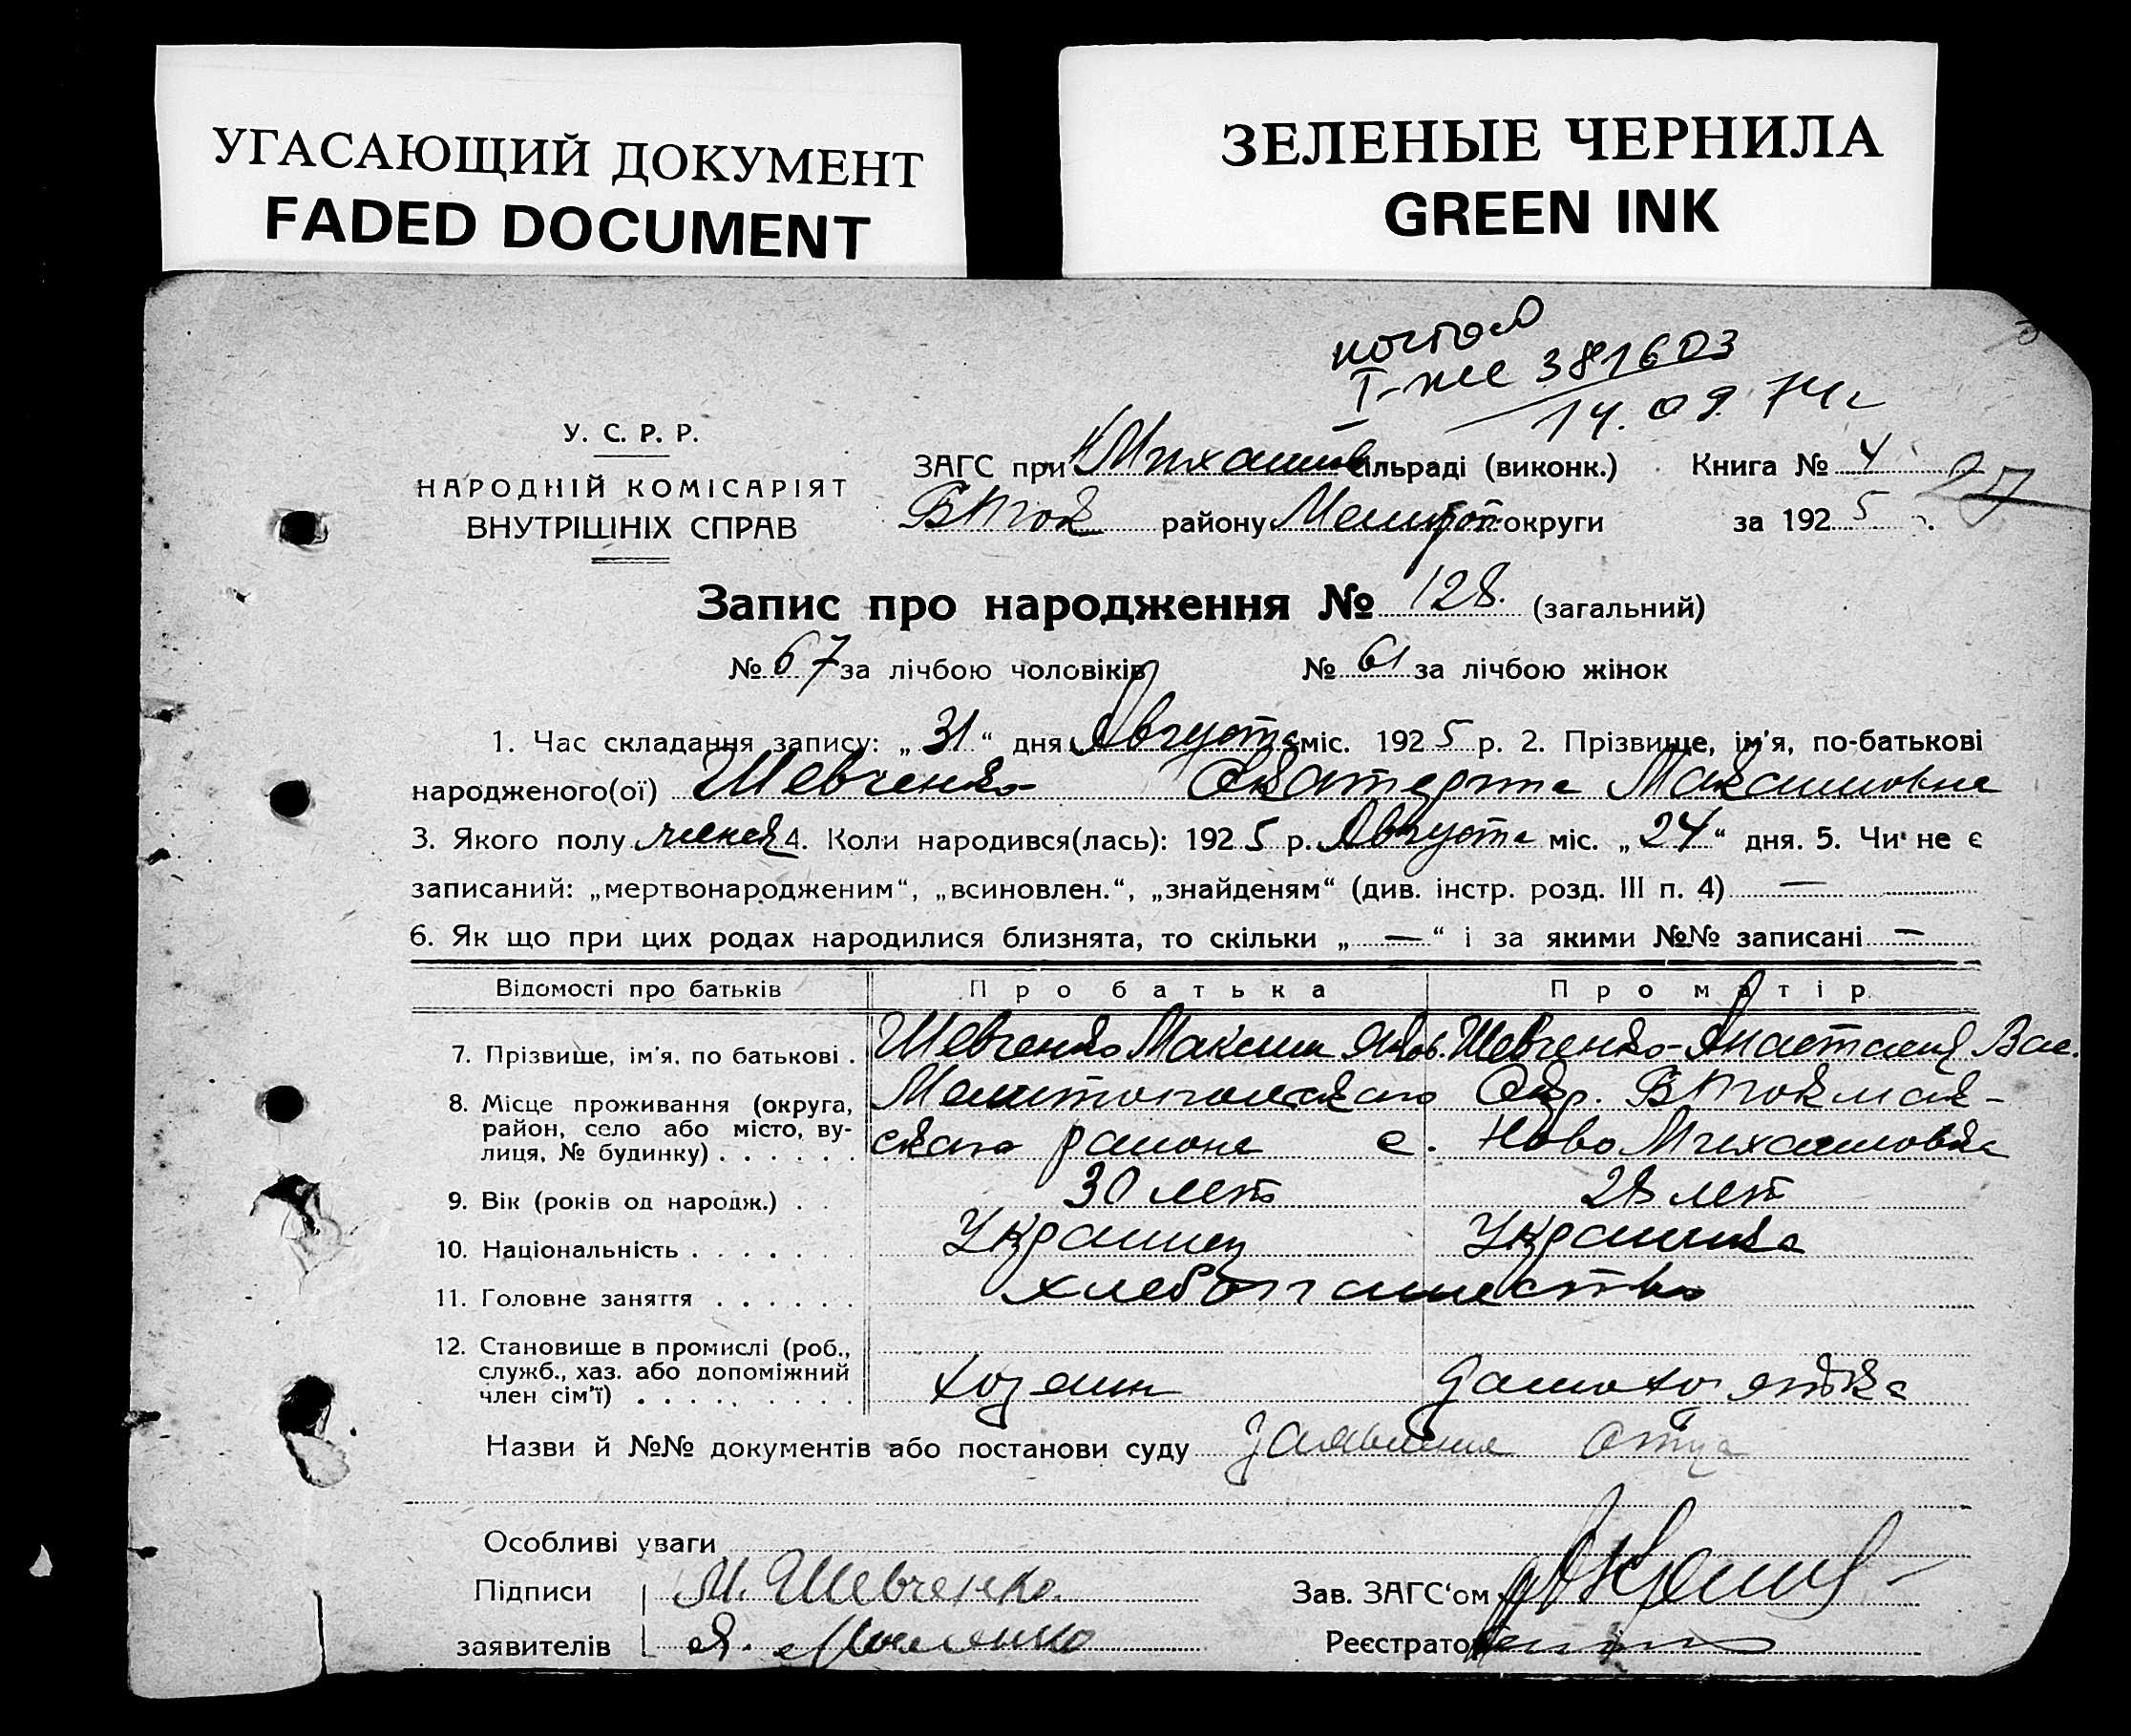 УГАСАЮЩИЙ ДОКУМЕНТ
FADED DOCUMENT
ЗЕЛЕНЫЕ ЧЕРНИЛА
GREEN INK
381603
14.09.74г
У. С. Р. Р.
НАРОДНІЙ КОМІСАРІЯТ
ВНУТРІШНІХ СПРАВ
ЗАГС при Н Михайлів сільраді (виконк.) Книга № 4 27
ВТок району Мелітоп округи за 1925
Запис про народження № 128. (загальний)
№ 67 за лічбою чоловіків № 61 за лічбою жінок
1. Час складання запису: „31“ дня Августа міс. 1925 р. 2. Прізвище, ім'я, по-батькові
народженого(ої) Шевченко Екатерина Максимовна
3. Якого полу женск 4. Коли народився(лась): 1925 р. Августа міс. „24“ дня. 5. Чи не є
записаний: „мертвонародженим“, „всиновлен.“, „знайденям“ (див. інстр. розд. III п. 4) —
6. Як що при цих родах народилися близнята, то скільки „—“ і за якими №№ записані —
Відомості про батьків Про батька Про матір
7. Прізвище, ім'я, по батькові . Шевченко Максим Яков. Шевченко Анастасия Вас.
8. Місце проживання (округа, Мелитопольского Окр. ВТокмак-
район, село або місто, ву- ского района с. Ново Михайловка
лиця, № будинку) . . . . . .
9. Вік (років од народж.) . . 30 лет 28 лет
10. Національність . . . . . Украинец Украинка
11. Головне заняття . . . . . . хлебопашество
12. Становище в промислі (роб.,
служб., хаз. або допоміжний хозяин домохозяйка
член сім'ї) . . . . . . . . .
Назви й №№ документів або постанови суду заявление отца
Особливі уваги
Підписи М. Шевченко Зав. ЗАГС'ом
заявителів Я. Реєстратор